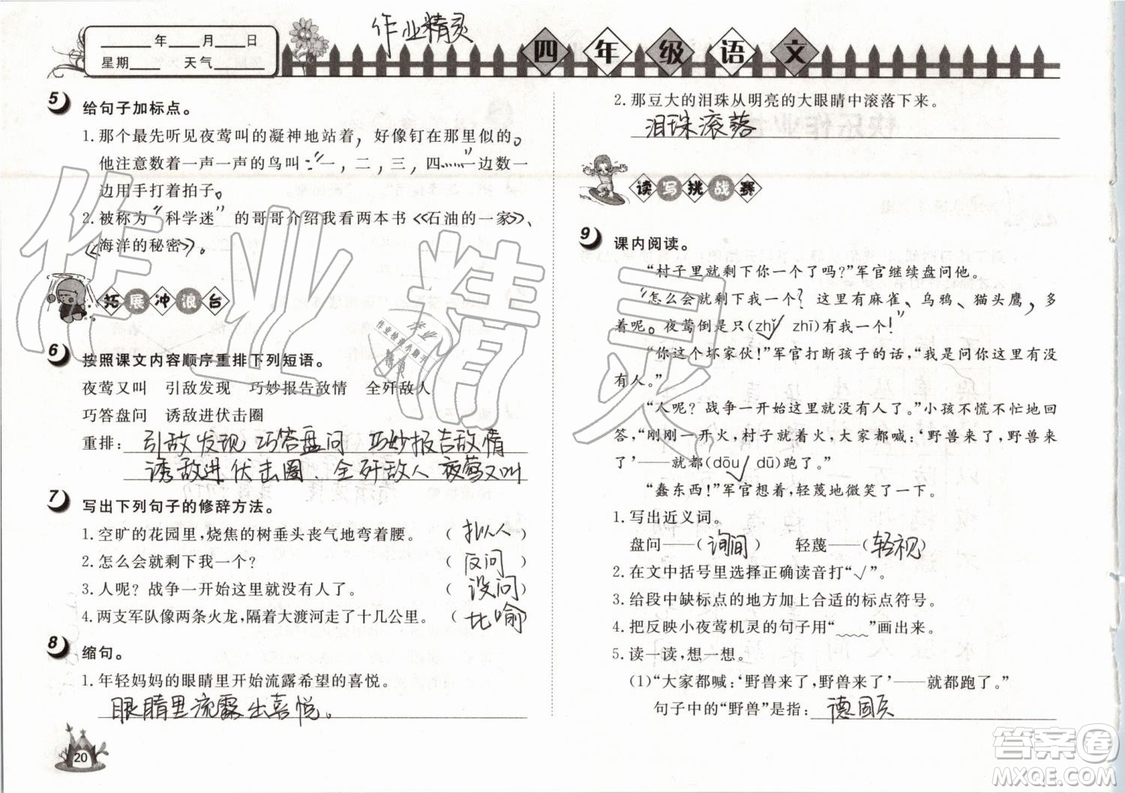 作业精灵
____年____月____日
星期____ 天气____
四年级语文
5 给句子加标点。
1. 那个最先听见夜莺叫的凝神地站着，好像钉在那里似的。
他注意数着一声一声的鸟叫：“一，二，三，四……”一边数
一边用手打着拍子。
2. 被称为“科学迷”的哥哥介绍我看两本书《石油的一家》、
《海洋的秘密》。
拓展冲浪台
6 按照课文内容顺序重排下列短语。
夜莺又叫 引敌发现 巧妙报告敌情 全歼敌人
巧答盘问 诱敌进伏击圈
重排：引敌发现 巧答盘问 巧妙报告敌情
诱敌进伏击圈、全歼敌人 夜莺又叫
7 写出下列句子的修辞方法。
1. 空旷的花园里，烧焦的树垂头丧气地弯着腰。（拟人）
2. 怎么会就剩下我一个？（反问）
3. 人呢？战争一开始这里就没有人了。（设问）
4. 两支军队像两条火龙，隔着大渡河走了十几公里。（比喻）
8 缩句。
1. 年轻妈妈的眼睛里开始流露希望的喜悦。
眼睛里流露出喜悦。
20
2. 那豆大的泪珠从明亮的大眼睛中滚落下来。
泪珠滚落
读写挑战赛
9 课内阅读。
“村子里就剩下你一个了吗？”军官继续盘问他。
“怎么会就剩下我一个？这里有麻雀、乌鸦、猫头鹰，多
着呢。夜莺倒是只（zhǐ√ zhī）有我一个！”
“你这个坏家伙！”军官打断孩子的话，“我问你这里是没
有人。”
“人呢？战争一开始这里就没有人了。”小孩不慌不忙地回
答，“刚刚一开火，村子就着火，大家都喊：‘野兽来了，野兽来
了’——就都（dōu√ dū）跑了。”
“蠢东西！”军官想着，轻蔑地微笑了一下。
1. 写出近义词。
盘问——（询问） 轻蔑——（轻视）
2. 在文中括号里选择正确读音打“√”。
3. 给段中缺标点的地方加上合适的标点符号。
4. 把反映小夜莺机灵的句子用“﹏﹏”画出来。
5. 读一读，想一想。
(1)“大家都喊：‘野兽来了，野兽来了’——就都跑了。”
句子中的“野兽”是指：德国兵
作业精灵
答案圈
MXQE.COM